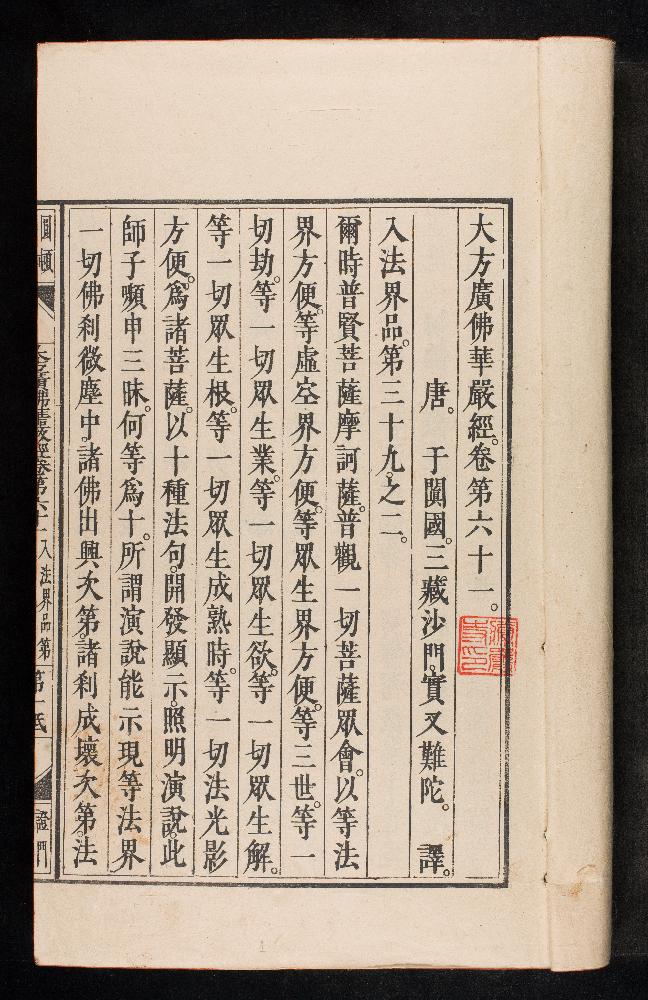 大方廣佛華嚴經。卷第六十一。
唐。于闐國。三藏沙門。實叉難陀。譯。
入法界品。第三十九。之二。
爾時普賢菩薩摩訶薩。普觀一切菩薩眾會。以等法
界方便。等虛空界方便。等眾生界方便。等三世。等一
切劫。等一切眾生業。等一切眾生欲。等一切眾生解。
等一切眾生根。等一切眾生成熟時。等一切法光影
方便。為諸菩薩。以十種法句。開發顯示。照明演說。此
師子嚬申三昧。何等為十。所謂演說能示現等法界
一切佛剎微塵中。諸佛出興次第。諸剎成壞次第。法
圓頓
大方廣佛華嚴經卷第六十一入法界品第
第一紙
證門